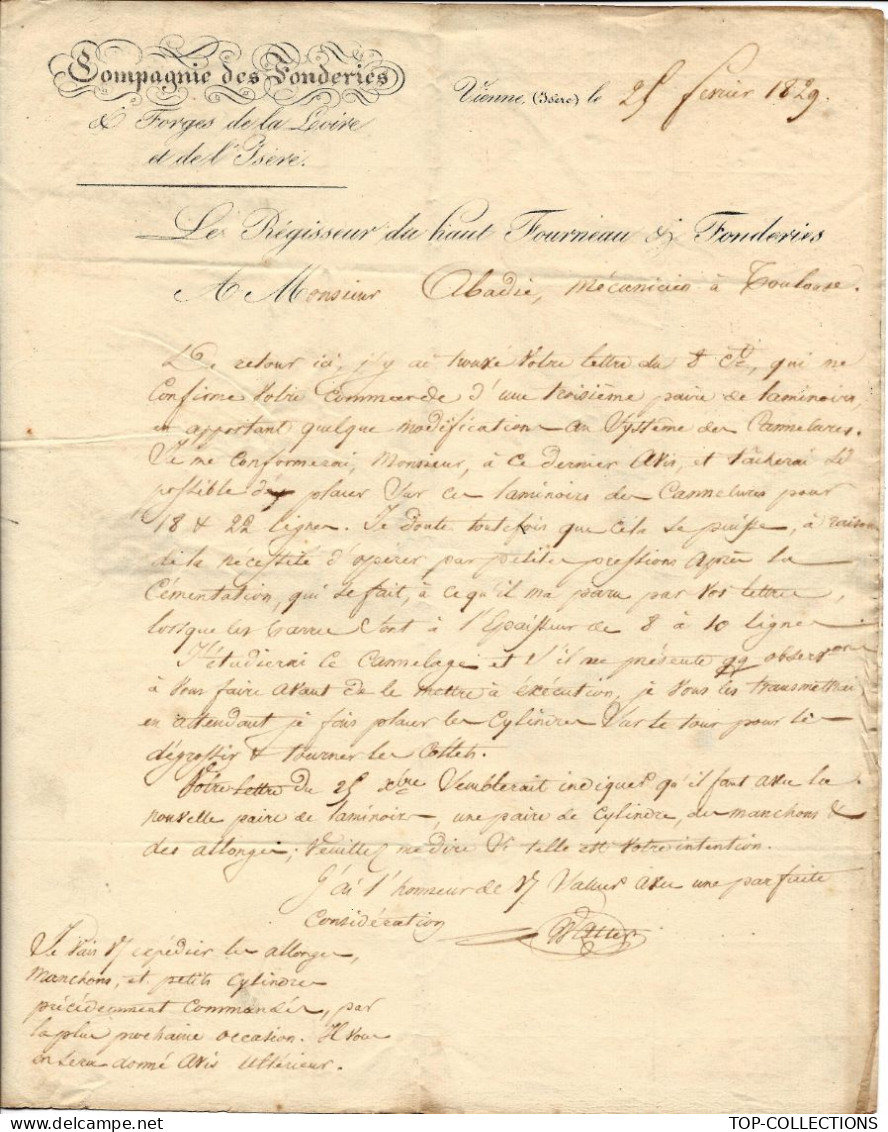 Compagnie des Fonderies
& Forges de la Loire
et de l'Isère.
Vienne, (Isère) le 25 fevrier 1829.
Le Régisseur du haut Fourneau & Fonderies
A Monsieur Abadie, mécanicien à Toulouse.
De retour ici, j'y ai trouvé votre lettre du 8 Ct, qui me
Confirme votre commande d'une troisième paire de laminoirs,
en apportant quelque modification au système des Cannelures.
Je me conformerai, Monsieur, à ce dernier avis, et tâcherai s'il
possible d'y placer sur ces laminoirs des Cannelures pour
18 & 22 lignes. Je doute toutefois que cela se puisse, à raison
de la nécessité d'opérer par petites pressions après la
Cémentation, qui se fait, à ce qu'il m'a paru par vos lettres,
lorsque les barres sont à l'épaisseur de 8 à 10 lignes
J'étudierai ce cannelage et s'il me présente qq observons
à vous faire avant de le mettre à exécution, je vous les transmettrai
en attendant je fais placer les cylindres sur le tour pour les
dégrossir & tourner les collets.
Votre lettre du 25 xbre semblerait indiquer qu'il faut avec la
nouvelle paire de laminoirs, une paire de cylindres, des manchons &
des allonges; veuillez me dire si telle est votre intention.
J'ai l'honneur de vs saluer avec une parfaite
Considération
Je vais vs expédier les allonges,
manchons, et petits cylindres
précédemment commandés, par
la plus prochaine occasion. Il vous
en sera donné avis ultérieur.
TOP-COLLECTIONS